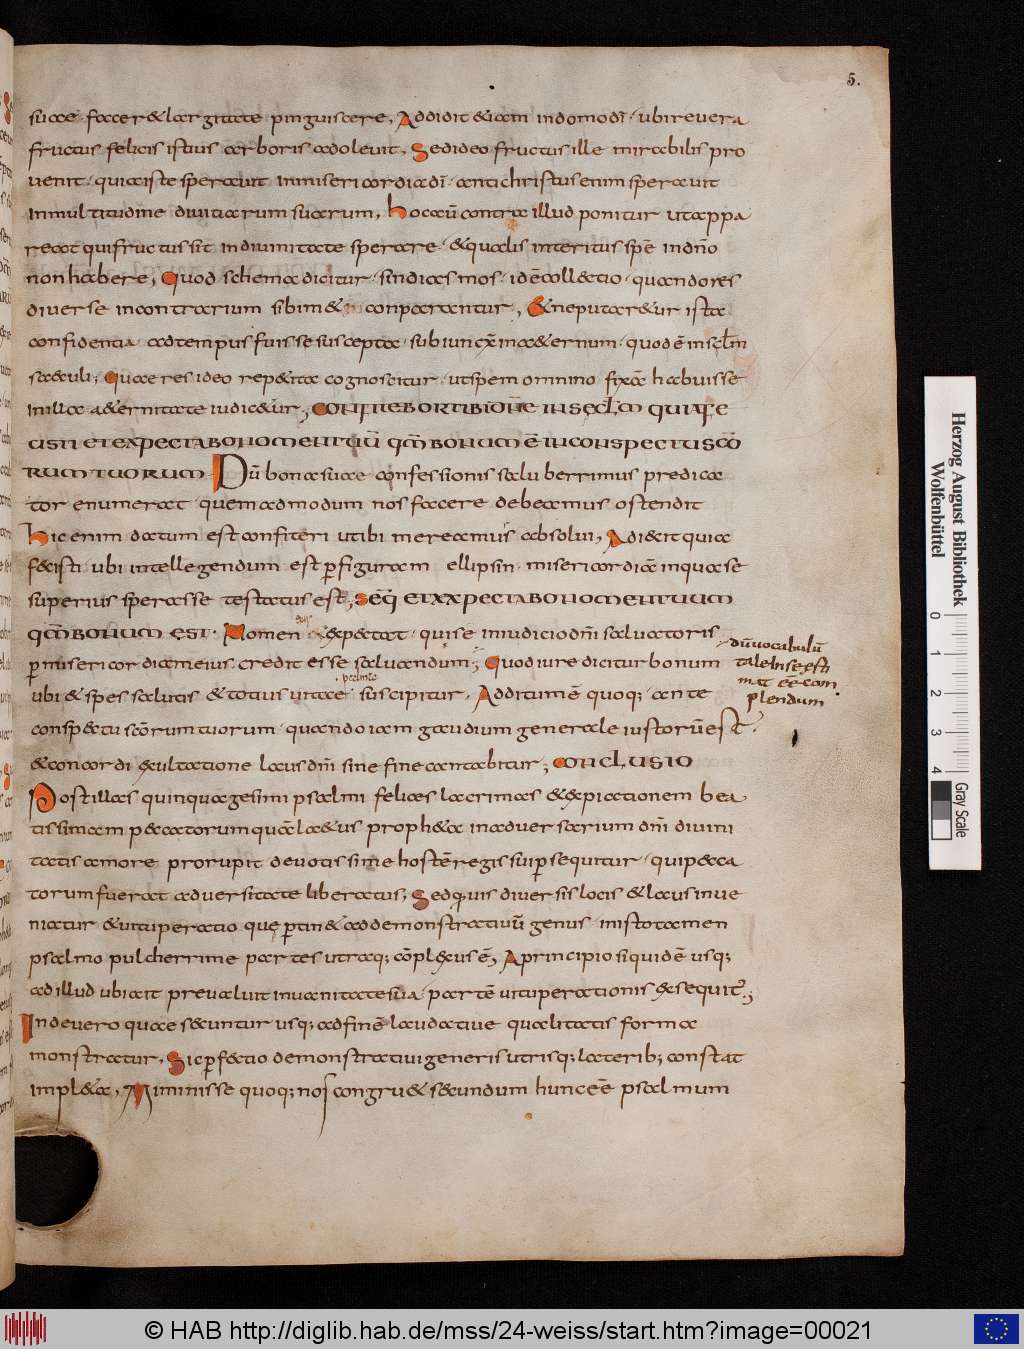 5.
suae · facer & largitate pinguiscere, Addidit & iam in domo di · ubi revera
fructus felicis istius arboris adolevit, Sed ideo fructus ille mirabilis pro
venit · quia iste speravit in misericordia di · antichristus enim speravit
in multitudine divitiarum suarum, hoc aū contra illud ponitur ut appa
reat qui fructus sit in divinitate sperare · & qualis interitus spē in dño
non habere, Quod schema dicitur · sindiasmos · id ē collectio · quando res
diverse in contrarium sibim & conparantur, & ne putar&ur ista
confidentia ad tempus fuisse suscepta · subiunx̄ in aeternum · quod ē in sclm
saeculi; Quae res ideo repetita cognoscitur · ut spem omnino fixā habuisse
in illa aeternitate iudic&ur; CONFITEBOR TIBI DNE IN SECLM QUI AFE
CISTI ET EXPECTABO NOMEN TUŪ QM BONUM Ē IN CONSPECTU SCO
RUM TUORUM Dū bona suae confessionis saluberrimus predica
tor enumerat · quemadmodum nos facere debeamus ostendit
hic enim datum est confiteri ut tibi mereamur absolui, Adiecit quia
fecisti · ubi intellegendum est p figuram ellipsin · misericordiā inqua se
superius sperasse testatus est, SEQ ET EXPECTABO NOMEN TUUM
QM BONUM EST · Nomen expectat · qui se in iudicio dni salvatoris
p misericordiam eius credit esse salvandum; Quod iure dicitur bonum
dū vocabulū
tale in se esti
mat eē com
plendum
psalmis
ubi & spes salutis & totius vitae suscipitur · Additum ē quoq; · ante
conspectu scōrum tuorum · quando iam gaudium generale iustorū est
& concordi exultatione laus dni sine fine cantabitur; CONCLUSIO
Post illas quinquagesimi psalmi felices lacrimas & expiationem bea
tissimam peccatorum quā laetus propheta in adversarium dni divini
tatis amore prorupit devotissime hostē regis sui p sequitur · qui pecca
torum fuerat adversitate liberatus; Sed quis diversis locis & laus inve
niatur & vituperatio quę ptin& ad demonstrativū genus · in isto tamen
psalmo pulcherrime partes utraq; cōplexus ē, A principio siquidē usq;
ad illud ubi ait prevaluit in vanitate sua · partē vituperationis exsequit̄;
Inde vero quae secuntur usq; ad finē laudative qualitatis forma
monstratur, Sic pfectio demonstrativi generis utrisq; laterib; constat
impleta, Miminisse quoq; nos congru& secundum hunc eē psalmum
Herzog August Bibliothek
Wolfenbüttel
0 1 2 3 4
Gray Scale
© HAB http://diglib.hab.de/mss/24-weiss/start.htm?image=00021